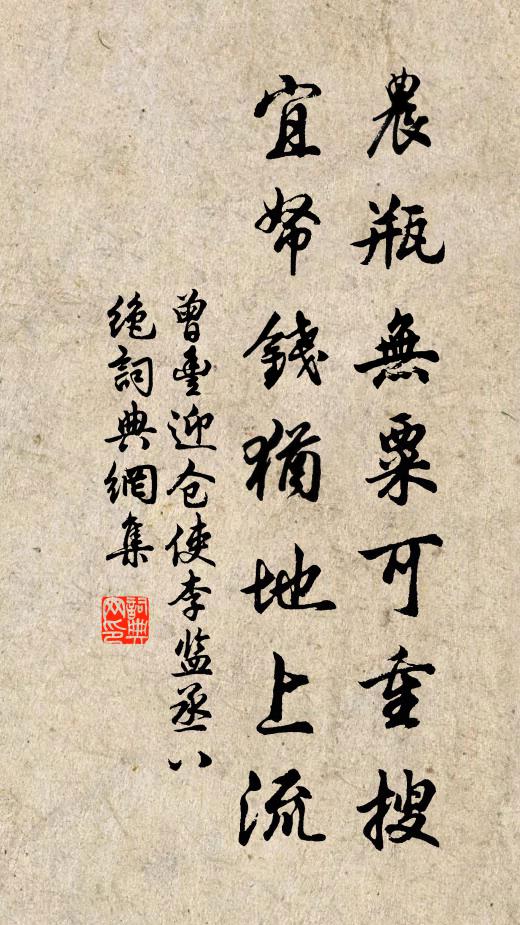 農瓶無粟可重搜
宜帑錢猶地上流
曾豊迎仓使李监丞八
绝詞典網集
詞典
网印